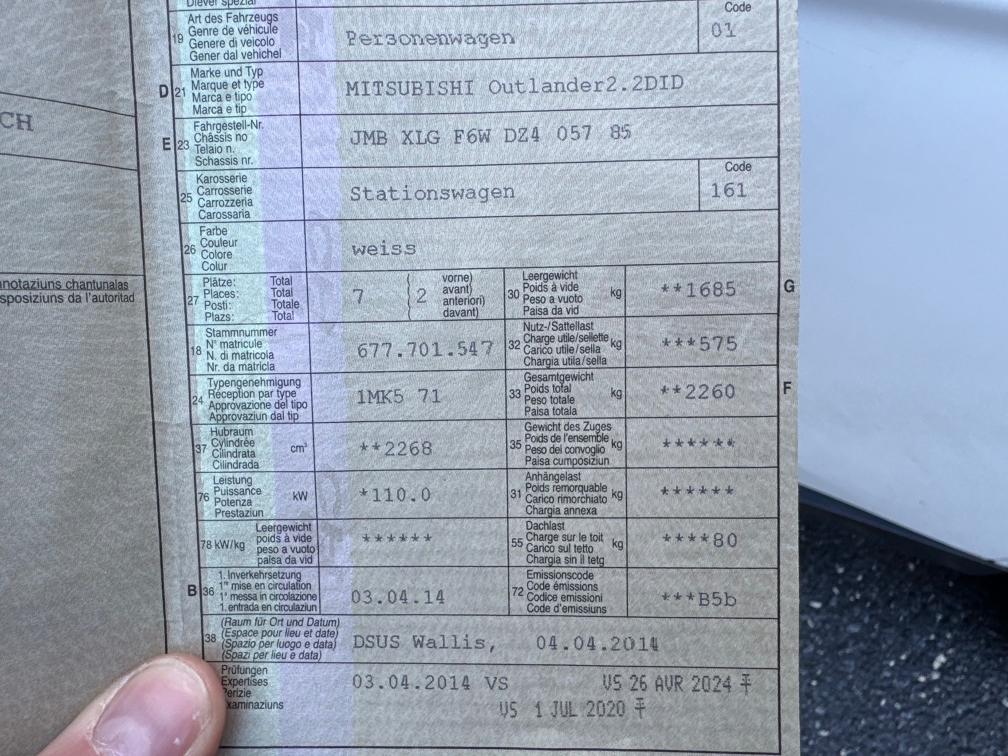 Diever spezial
CH
nnotaziuns chantunalas
sposiziuns da l'autoritad
19
Art des Fahrzeugs
Genre de véhicule
Genere di veicolo
Gener dal vehichel
Personenwagen
Code
01
D
21
Marke und Typ
Marque et type
Marca e tipo
Marca e tip
MITSUBISHI Outlander2.2DID
E
23
Fahrgestell-Nr.
Châssis no
Telaio n.
Schassis nr.
JMB XLG F6W DZ4 057 85
25
Karosserie
Carrosserie
Carrozzeria
Carossaria
Stationswagen
Code
161
26
Farbe
Couleur
Colore
Colur
weiss
27
Plätze: Total
Places: Total
Posti: Totale
Plazs: Total
7
2
vorne)
avant)
anteriori)
davant)
30
Leergewicht
Poids à vide
Peso a vuoto
Paisa da vid
kg
**1685
G
18
Stammnummer
N° matricule
N. di matricola
Nr. da matricla
677.701.547
32
Nutz-/Sattellast
Charge utile/sellette
Carico utile/sella
Chargia utila/sella
kg
***575
24
Typengenehmigung
Réception par type
Approvazione del tipo
Approvaziun dal tip
1MK5 71
33
Gesamtgewicht
Poids total
Peso totale
Paisa totala
kg
**2260
F
37
Hubraum
Cylindrée
Cilindrata
Cilindrada
cm³
**2268
35
Gewicht des Zuges
Poids de l'ensemble
Peso del convoglio
Paisa cumposiziun
kg
******
76
Leistung
Puissance
Potenza
Prestaziun
kW
*110.0
31
Anhängelast
Poids remorquable
Carico rimorchiato
Chargia annexa
kg
******
78 kW/kg
Leergewicht
poids à vide
peso a vuoto
paisa da vid
******
55
Dachlast
Charge sur le toit
Carico sul tetto
Chargia sin il tetg
kg
****80
B
36
1. Inverkehrsetzung
1re mise en circulation
1a messa in circolazione
1. entrada en circulaziun
03.04.14
72
Emissionscode
Code émissions
Codice emissioni
Code d'emissiuns
***B5b
38
(Raum für Ort und Datum)
(Espace pour lieu et date)
(Spazio per luogo e data)
(Spazi per lieu e data)
DSUS Wallis, 04.04.2014
Prüfungen
Expertises
Perizie
Examinaziuns
03.04.2014 VS
VS 26 AVR 2024
VS 1 JUL 2020